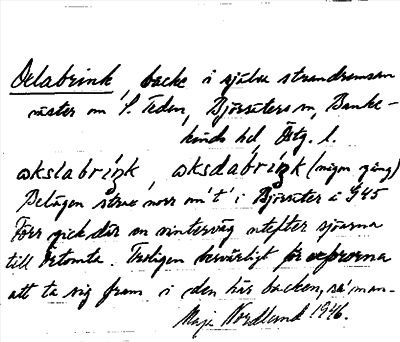 Oxlabrink, backe i själva strandremsan
väster om S. Teden, Björsäters sn, Banke-
kinds hd, Östg. l.
okslabriŋk, oksdabriŋk (någon gång)
Belägen strax norr om 't' i Björsäter å G45
Förr gick där en vinterväg utefter sjöarna
till Örtomta. Troligen besvärligt för oxfororna
att ta sig fram i den här backen, sa' man-
Maja Nordlund 1946.